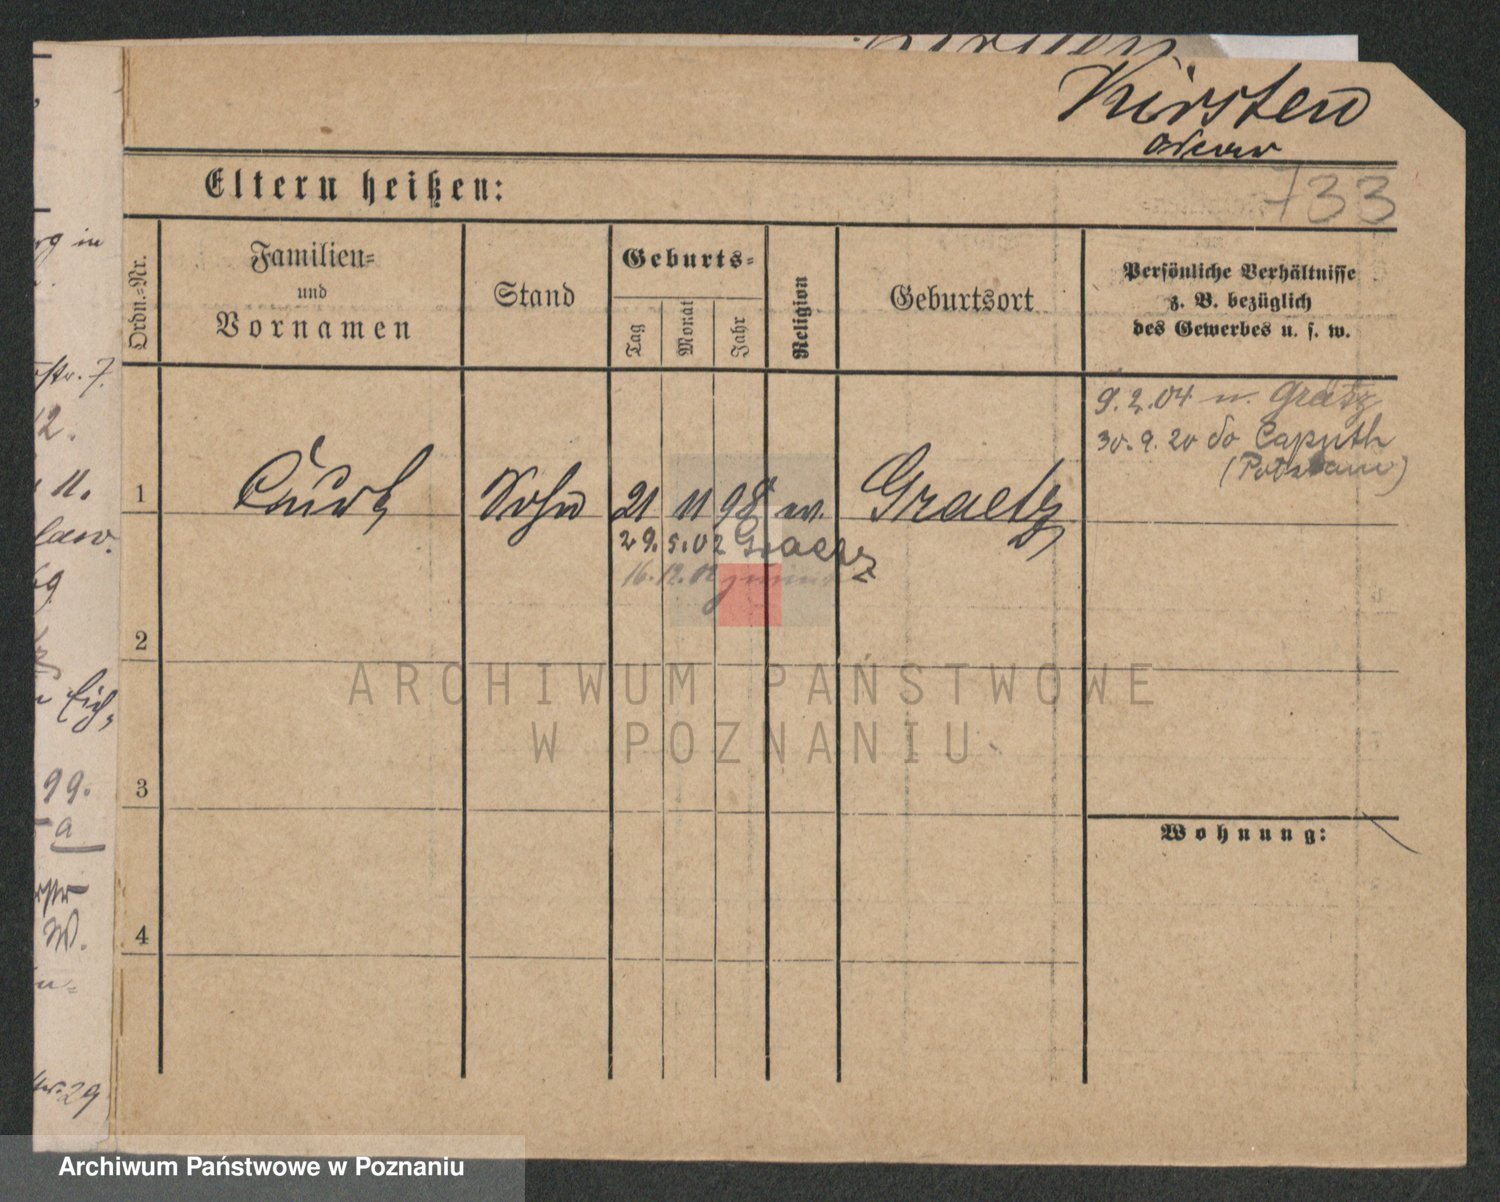 Kirsten
Oscar
733
Eltern heißen:
Ordn.-Nr.
Familien=
und
Vornamen
Stand
Geburts=
Tag
Monat
Jahr
Religion
Geburtsort
Persönliche Verhältnisse
z. B. bezüglich
des Gewerbes u. s. w.
9.2.04 n. Grätz
30.9.20 do Caputh
(Potsdam)
1 Curt Sohn 21 11 98 ev. Graetz
29.5.02 Graetz
16.12.02
2
3
Wohnung:
4
rg in
str. 7.
12.
11.
99.
a
W.
29
ARCHIWUM PAŃSTWOWE
W POZNANIU
Archiwum Państwowe w Poznaniu